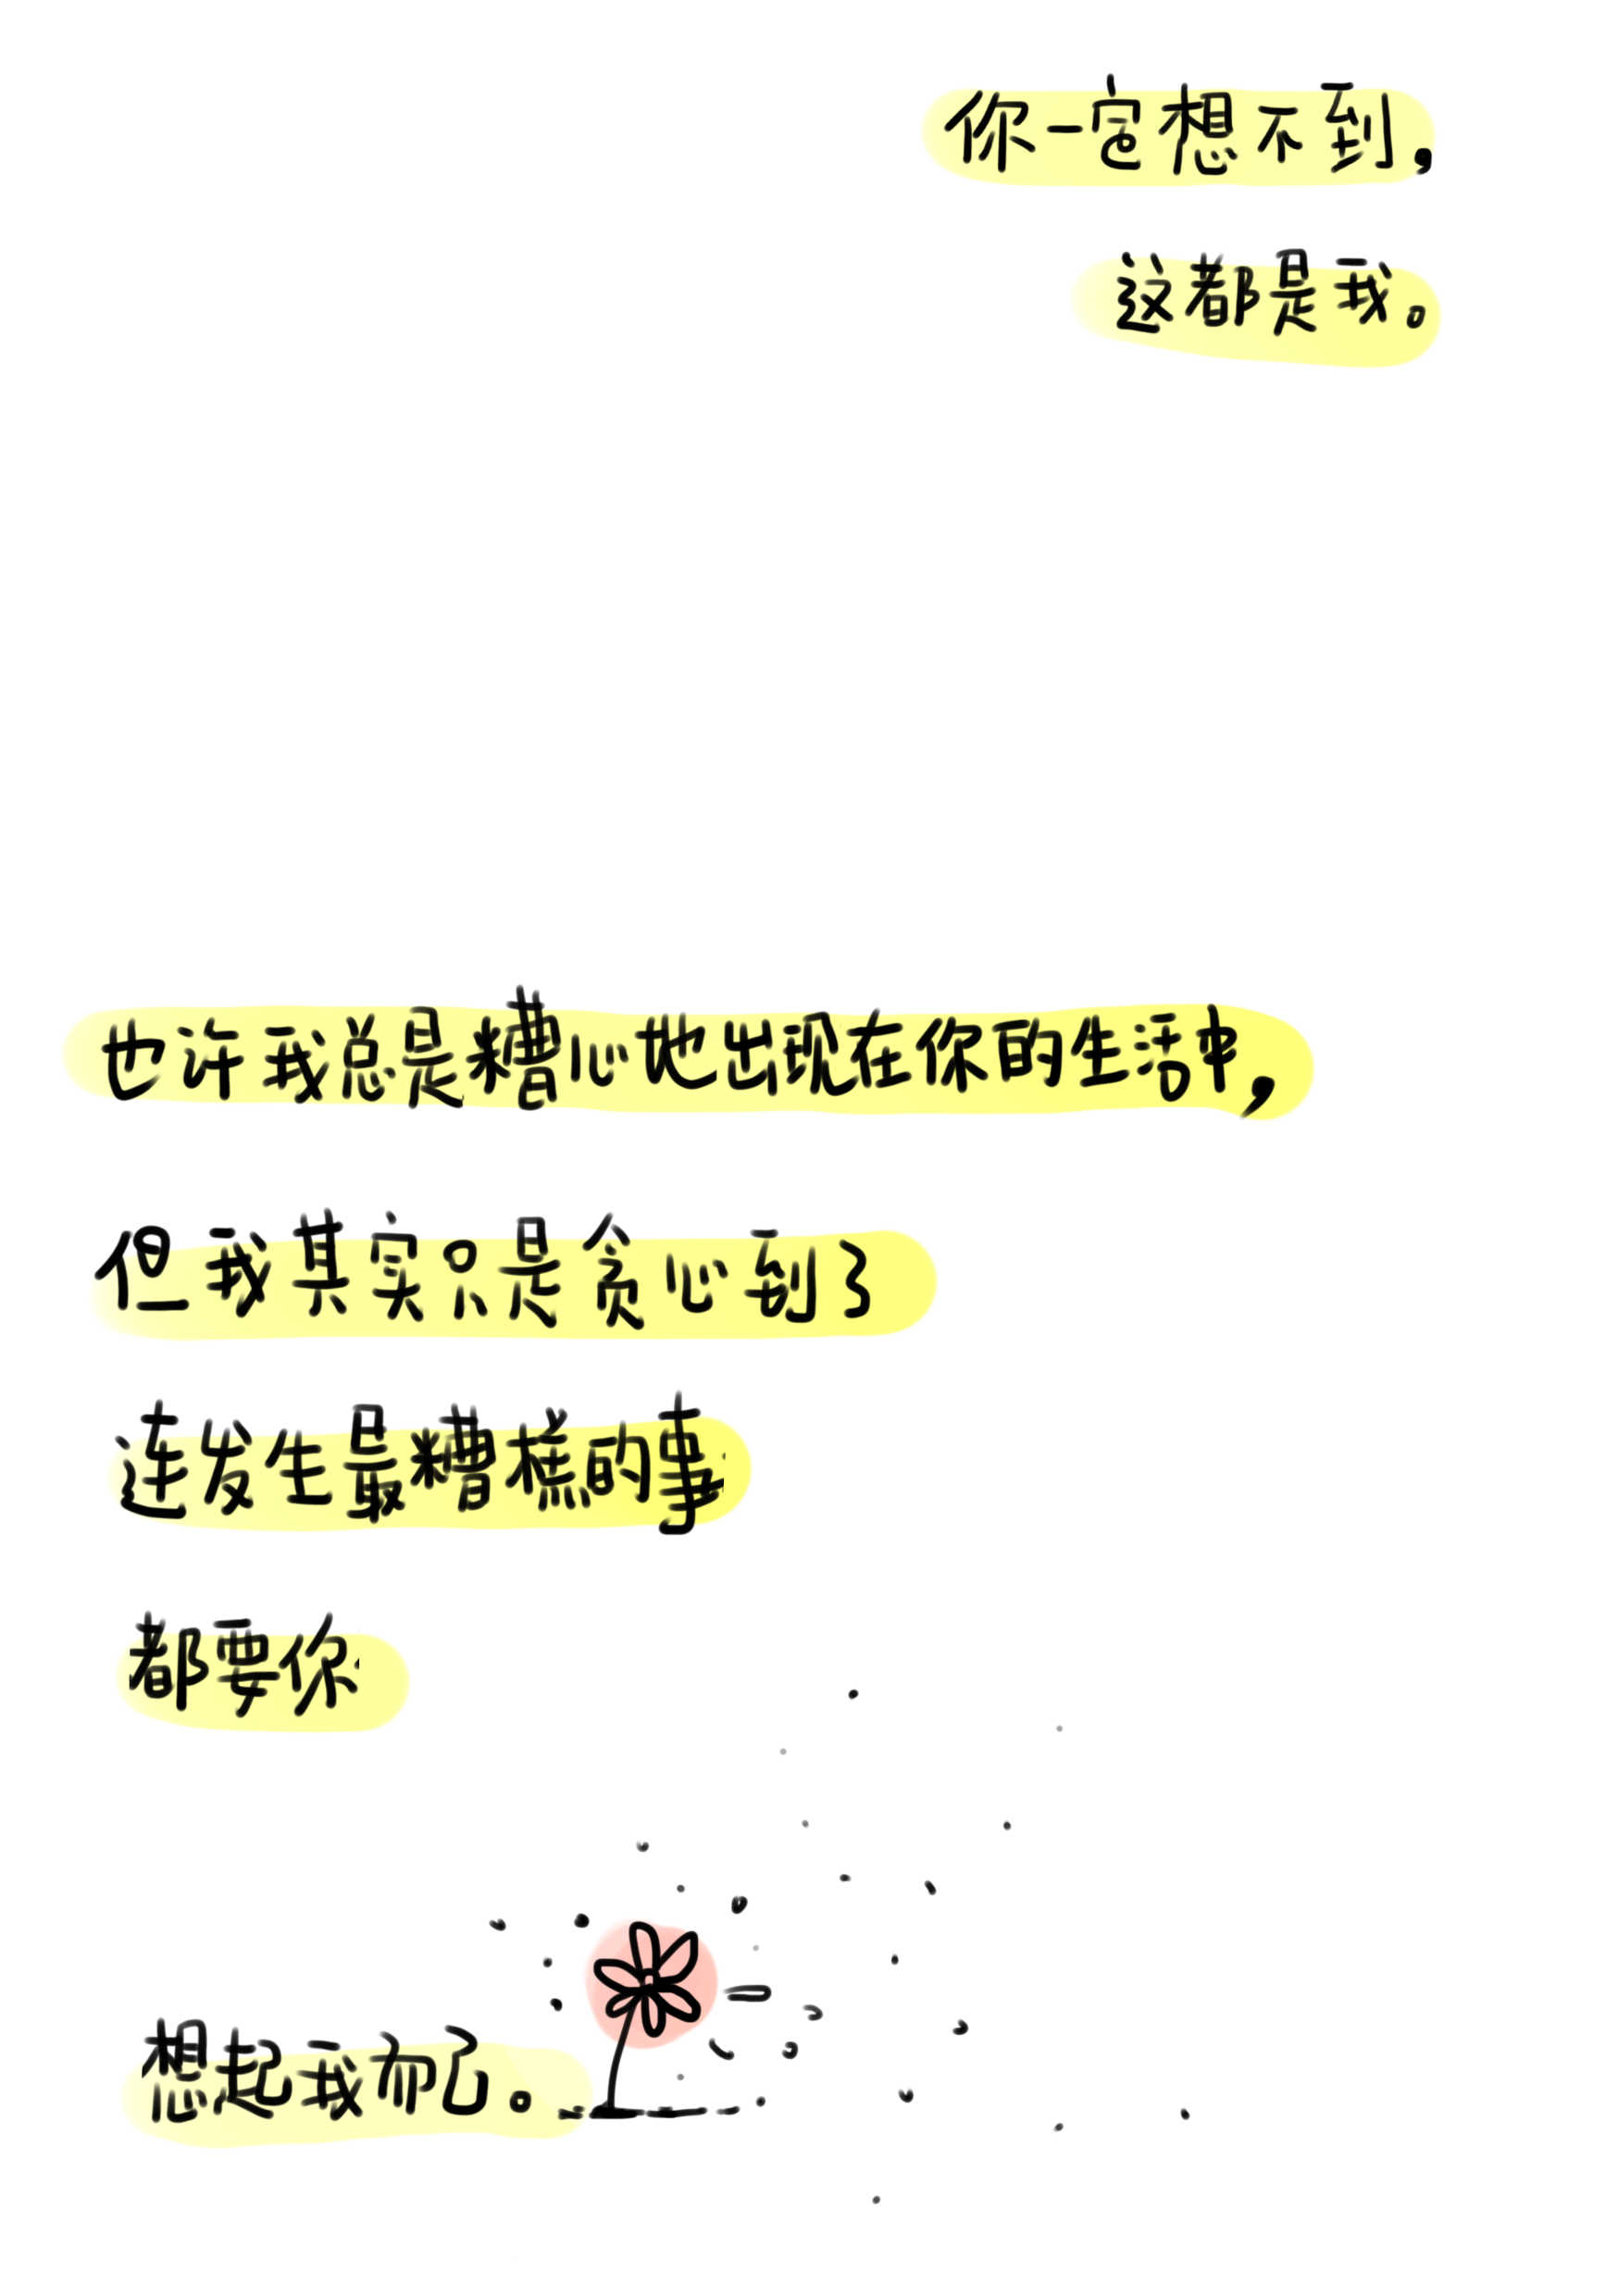 你一定想不到，
这都是我。
也许我总是糟心地出现在你的生活中，
但我其实只是贪心到了
连发生最糟糕的事
都要你
想起我而已。